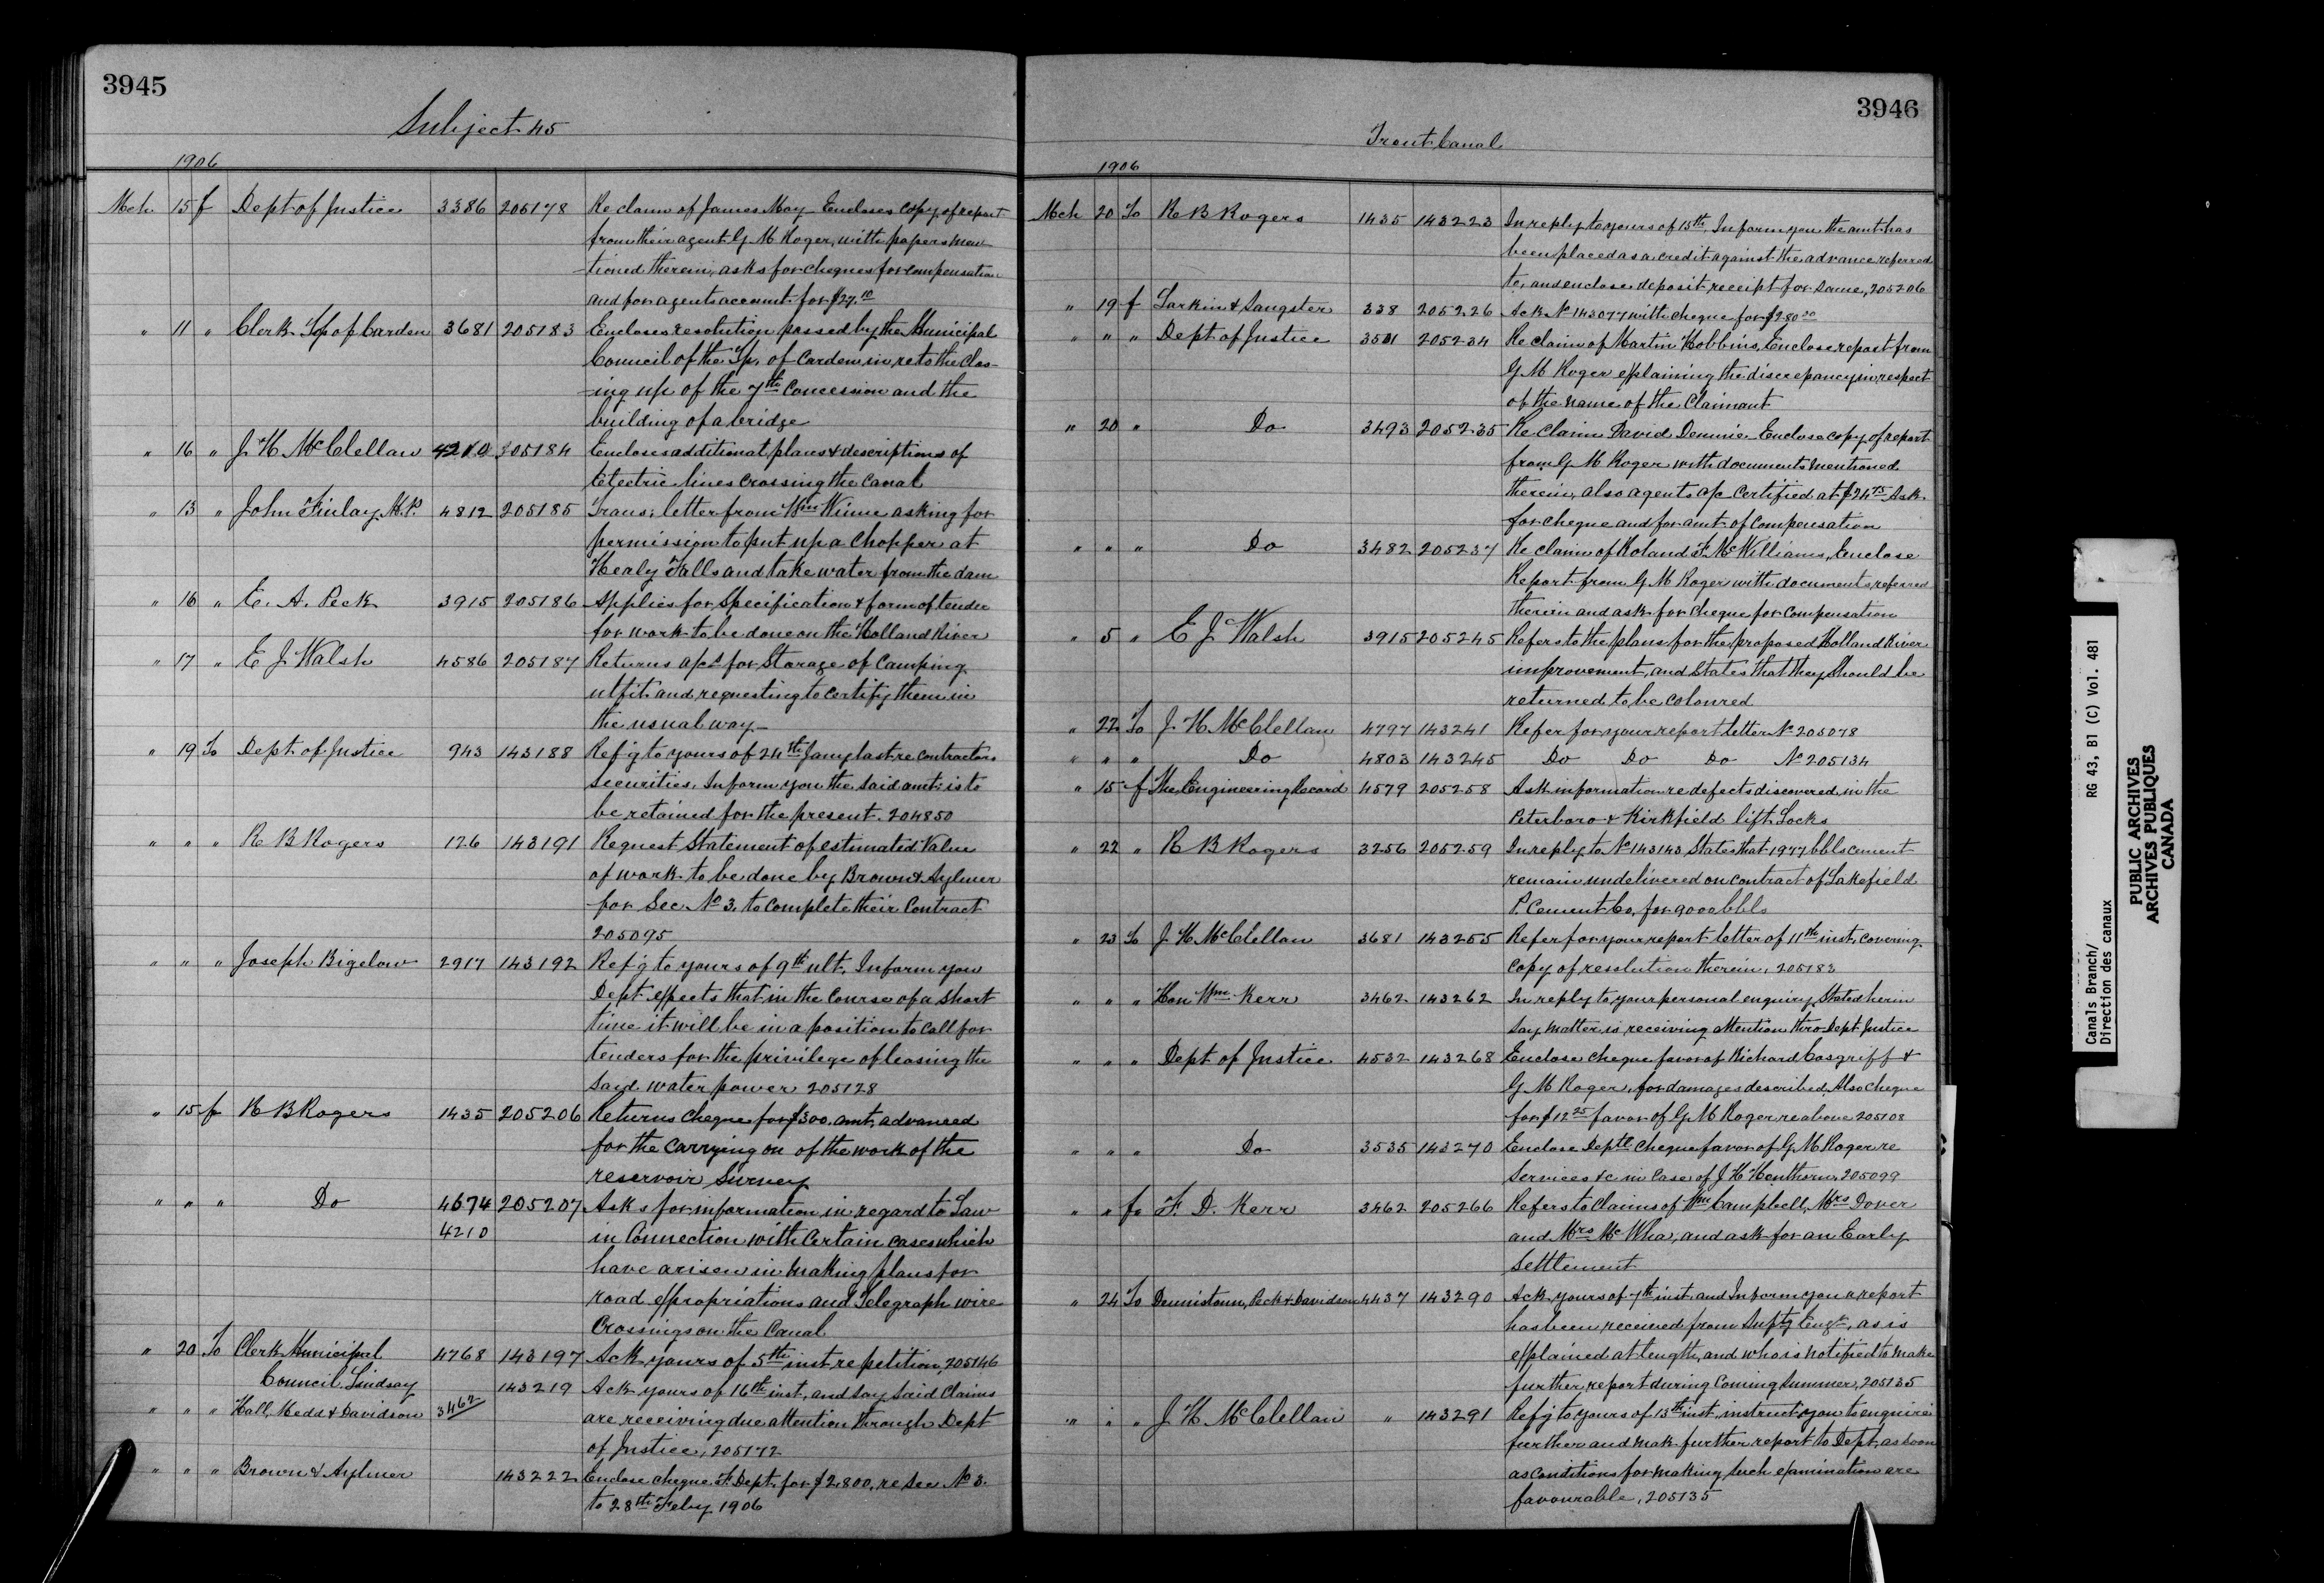 3945
Subject 45
1906
Mch 15 f Dept of Justice 3386 205178 Re claim of James May Encloses copy of report
from their agent G M Roger, with papers men
-tioned therein, asks for cheques for compensation
and for agents account for $27.10
" 11 " Clerk Tp of Carden 3681 205183 Encloses resolution passed by the Municipal
Council of the Tp. of Carden, in re to the clos-
-ing up of the 7th Concession and the
building of a bridge
" 16 " J H McClellan 4210 205184 Encloses additional plans & descriptions of
Electric lines crossing the Canal
" 13 " John Finlay M.P. 4812 205185 Trans: letter from Wm Winne asking for
permission to put up a Chopper at
Healy Falls and take water from the dam
" 16 " E. A. Peck 3915 205186 Applies for Specification & form of tender
for work to be done on the Holland River
" 17 " E J Walsh 4586 205187 Returns a/cs for Storage of Camping
utfit and requesting to certify them in
the usual way
" 19 To Dept of Justice 943 143188 Ref'g to yours of 24th Jany last re contractors
securities. Inform you the said amt. is to
be retained for the present. 204850
" " " R B Rogers 126 143191 Request Statement of estimated Value
of work to be done by Brown & Aylmer
for Sec No 3. to complete their Contract
205095
" " " Joseph Bigelow 2917 143192 Ref'g to yours of 9th ult. Inform you
Dept expects that in the course of a short
time it will be in a position to call for
tenders for the privilege of leasing the
said water power 205128
" 15 f R B Rogers 1435 205206 Returns cheque for $300. amt. advanced
for the carrying on of the work of the
reservoir Survey
" " " Do 4674 205207 Asks for information in regard to Law
4210 in Connection with Certain cases which
have arisen in making plans for
road expropriations and Telegraph wire
Crossings on the Canal
" 20 To Clerk Municipal 4768 143197 Ack yours of 5th inst re petition, 205146
Council Lindsay 143219 Ack yours of 16th inst, and say said Claims
" " " Hall, Medd & Davidson 3462 are receiving due attention through Dept
of Justice, 205172
" " " Brown & Aylmer 143222 Enclose cheque F. Dept. for $2,800, re Sec No 3.
to 28th Feby 1906
3946
Trent Canal
1906
Mch 20 To R B Rogers 1435 143223 In reply to yours of 15th, Inform you the amt. has
been placed as a credit against the advance referred
to, and enclose deposit receipt for same, 205206
" 19 f Larkin & Sangster 338 205226 Ack No 143077 with cheque for $280
" " " Dept of Justice 3501 205234 Re claim of Martin Hobbins, Enclose report from
G M Roger explaining the discrepancy in respect
of the name of the Claimant
" 20 " Do 3493 205235 Re Claim David Dennie Enclose copy of report
from G M Roger with documents mentioned
therein, also agents a/c Certified at $24.75 Ask
for cheque and for amt of Compensation
" " " Do 3482 205237 Re claim of Roland F. McWilliams, Enclose
Report from G M Roger with documents referred
therein and ask for cheque for compensation
" 5 " E J Walsh 3915 205245 Refers to the plans for the proposed Holland River
improvement, and States that they should be
returned to be coloured
" 22 To J H McClellan 4797 143241 Refer for your report letter No 205078
" " " Do 4803 143245 Do Do Do No 205134
" 15 f The Engineering Record 4579 205258 Ask information re defects discovered in the
Peterboro & Kirkfield lift Locks
" 22 " R B Rogers 3256 205259 In reply to No 143143 States that 1977 bbls cement
remain undelivered on contract of Lakefield
P. Cement Co, for 9000 bbls
" 23 To J H McClellan 3681 143255 Refer for your report letter of 11th inst, covering
copy of resolution therein, 205183
" " " Hon Wm Kerr 3462 143262 In reply to your personal enquiry Stated herein
say matter is receiving attention thro Dept Justice
" " " Dept of Justice 4532 143268 Enclose cheque favor of Richard Cosgriff &
G M Roger, for damages described, Also cheque
for $12.25 favor of G M Roger re above 205108
" " " Do 3535 143270 Enclose Deptl cheque favor of G M Roger re
Services &c in Case of J H Henthorne 205099
" " fr F. D. Kerr 3462 205266 Refers to Claims of Wm Campbell, Mrs Dover
and Mrs McWha, and ask for an Early
Settlement
" 24 To Dennistoun, Peck & Davidson 4437 143290 Ack yours of 7th inst and Inform you a report
has been received from Suptg Engr, as is
explained at length, and who is notified to make
further report during Coming Summer, 205135
" " " J H McClellan " 143291 Ref'g to yours of 13th inst, instruct you to enquire
further and mak further report to Dept, as soon
as conditions for making such examination are
favourable, 205135
Canals Branch/ RG 43, B1 (C) Vol. 481
Direction des canaux
PUBLIC ARCHIVES
ARCHIVES PUBLIQUES
CANADA